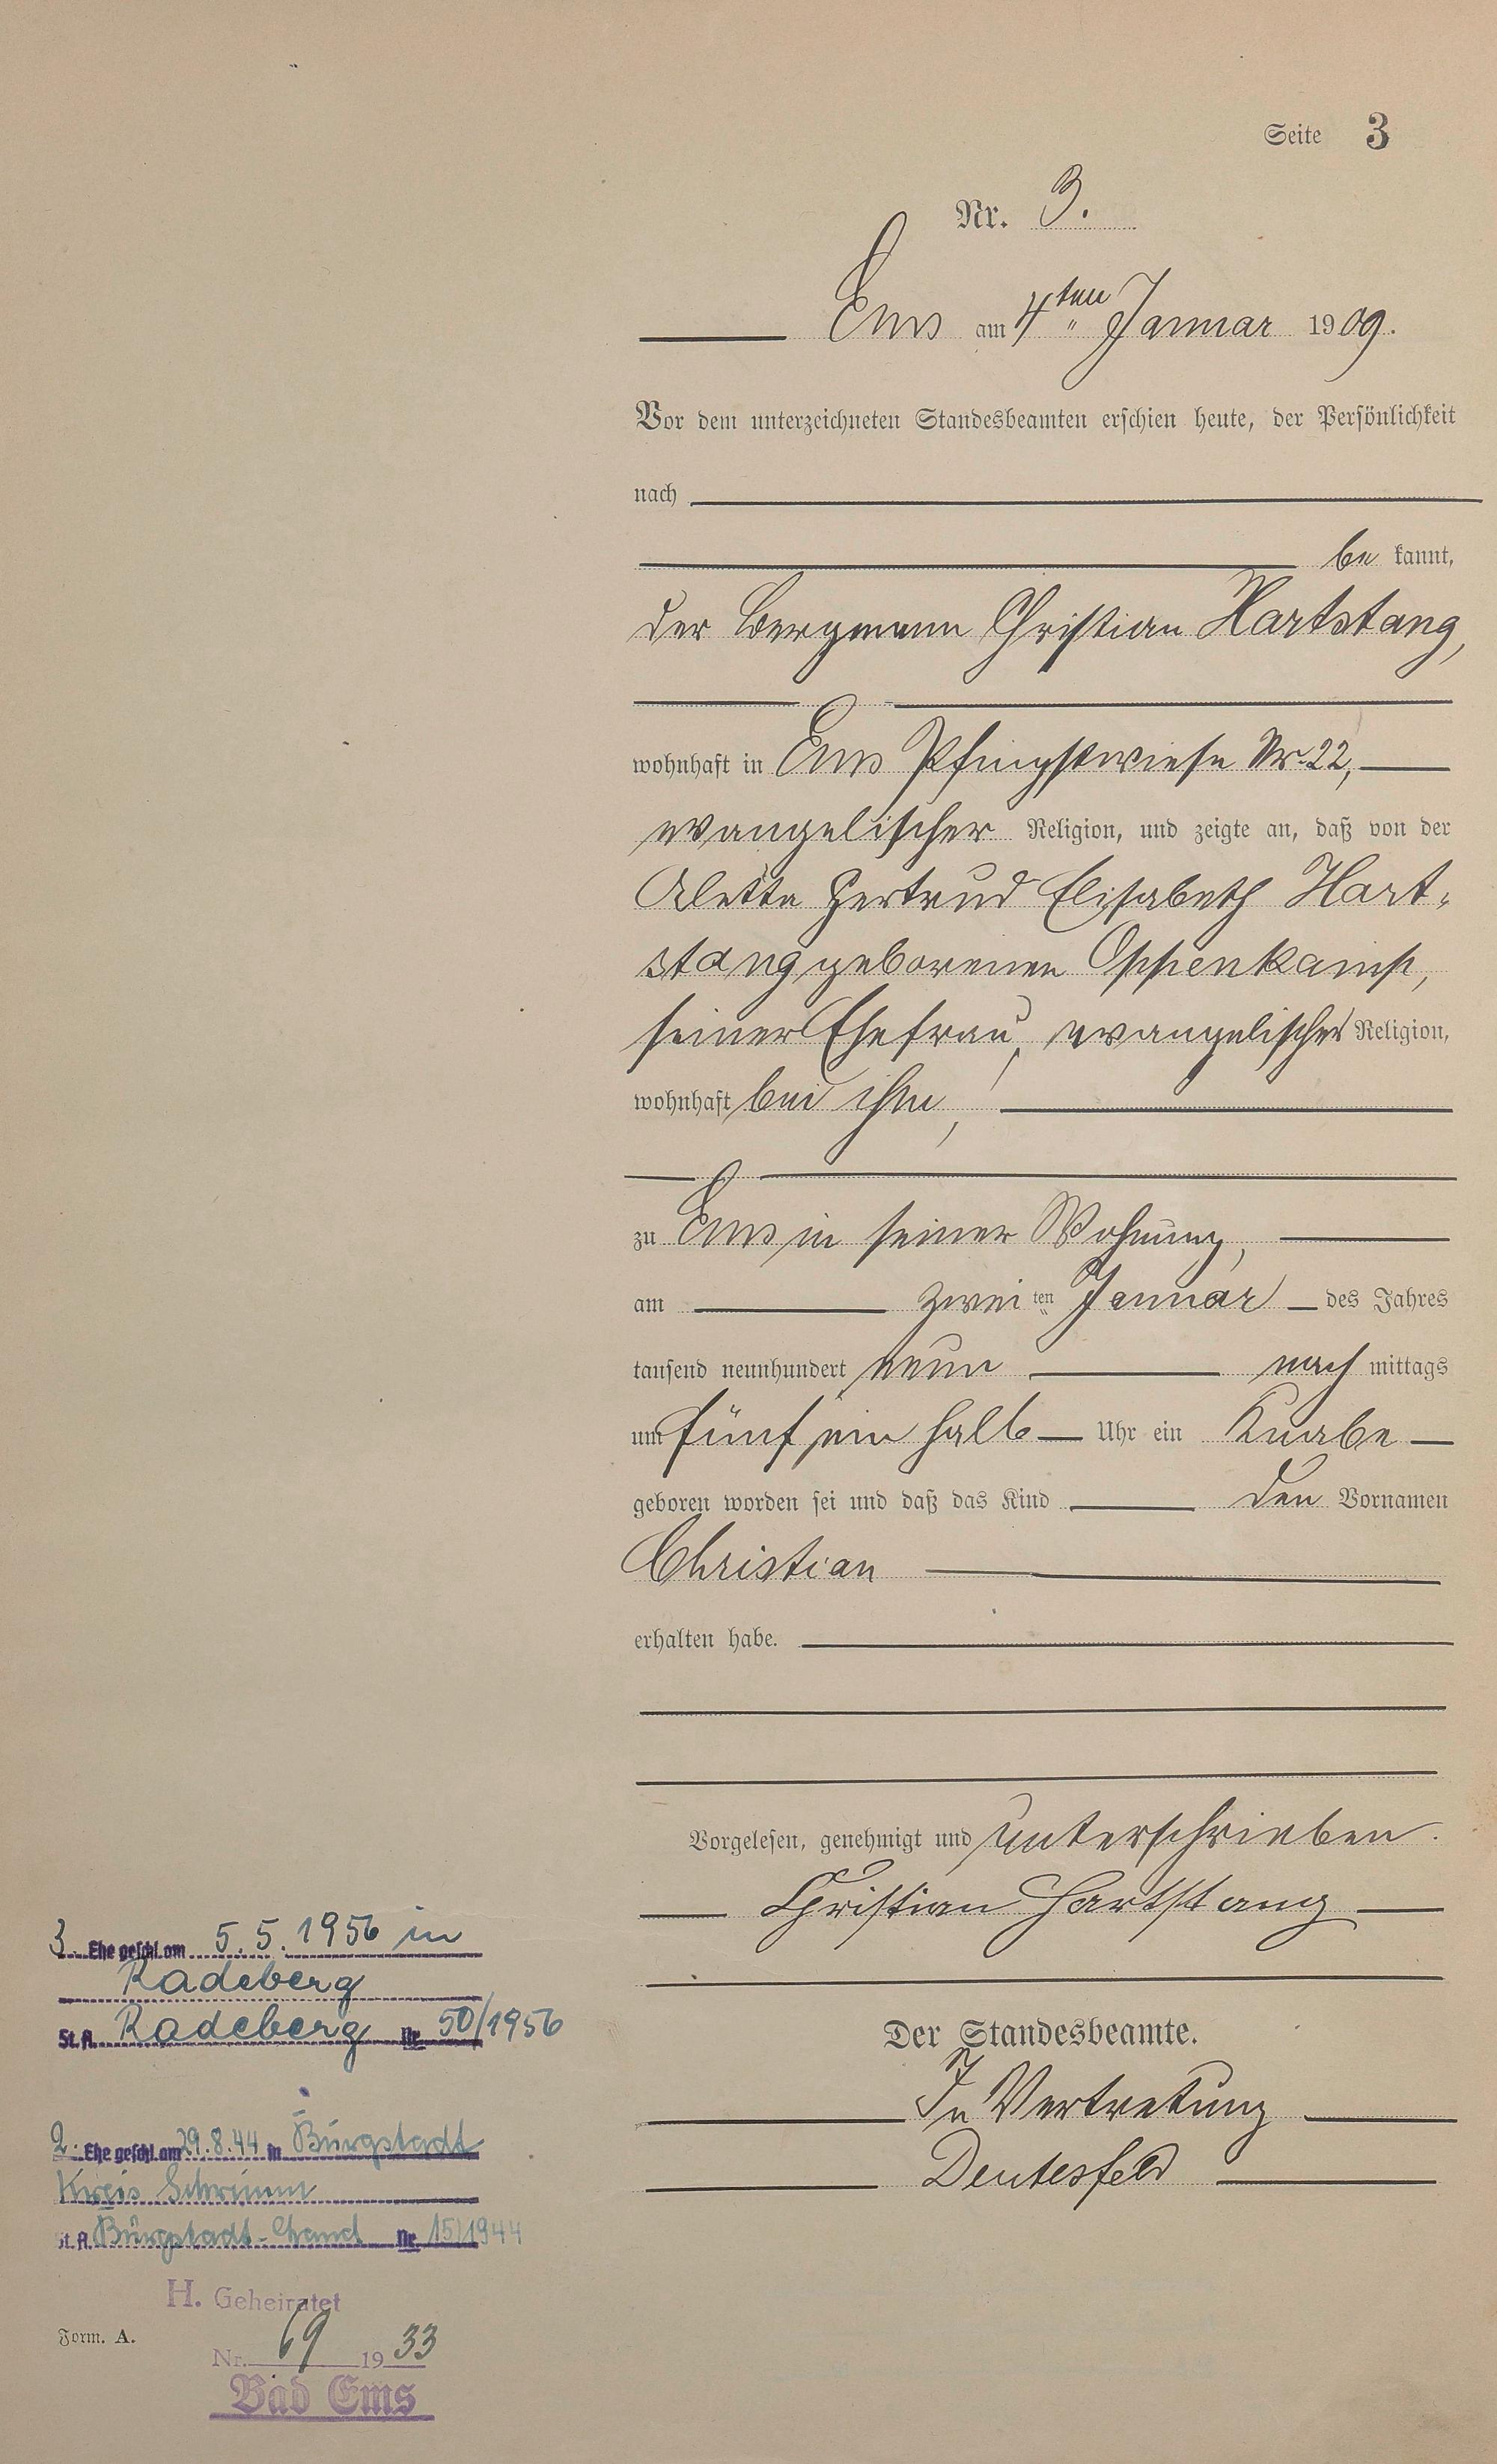 Seite 3
Nr. 3.
Ems am 4ten Januar 1909.
Vor dem unterzeichneten Standesbeamten erschien heute, der Persönlichkeit
nach
be kannt,
der Bergmann Christian Hartstang,
wohnhaft in Ems Pfingstwiese Nr. 22,
evangelischer Religion, und zeigte an, daß von der
Aletta Gertrud Elisabeth Hart-
stang geborenen Oppenkamp,
seiner Ehefrau, evangelischer Religion,
wohnhaft bei ihm,
zu Ems in seiner Wohnung,
am zwei ten Januar des Jahres
tausend neunhundert neun nach mittags
um fünf ein halb Uhr ein Knabe
geboren worden sei und daß das Kind den Vornamen
Christian
erhalten habe.
Vorgelesen, genehmigt und unterschrieben.
Christian Hartstang
Der Standesbeamte.
In Vertretung
Deutesfeld
3. Ehe geschl. am 5.5.1956 in
Radeberg
St. A. Radeberg Nr. 50/1956
2. Ehe geschl. am 29.8.44 in Burgstadt
Kreis Schrimm
St. A. Burgstadt- Nr. 15/1944
H. Geheiratet
Nr. 69 1933
Bad Ems
Form. A.